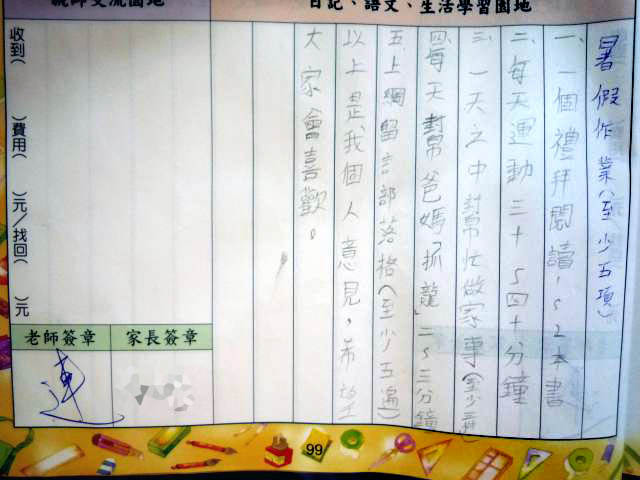 日記、語文、生活學習園地
暑假作業(至少五項)
一、一個禮拜閱讀1~2本書
二、每天運動三十~四十分鐘
三、一天之中幫忙做家事(至少一種)
四、每天幫爸媽抓龍2~3分鐘
五、上網留言部落格(至少五遍)
以上是我個人意見,希望
大家會喜歡。
親師交流園地
收到( )費用( )元/找回( )元
老師簽章
家長簽章
連
99